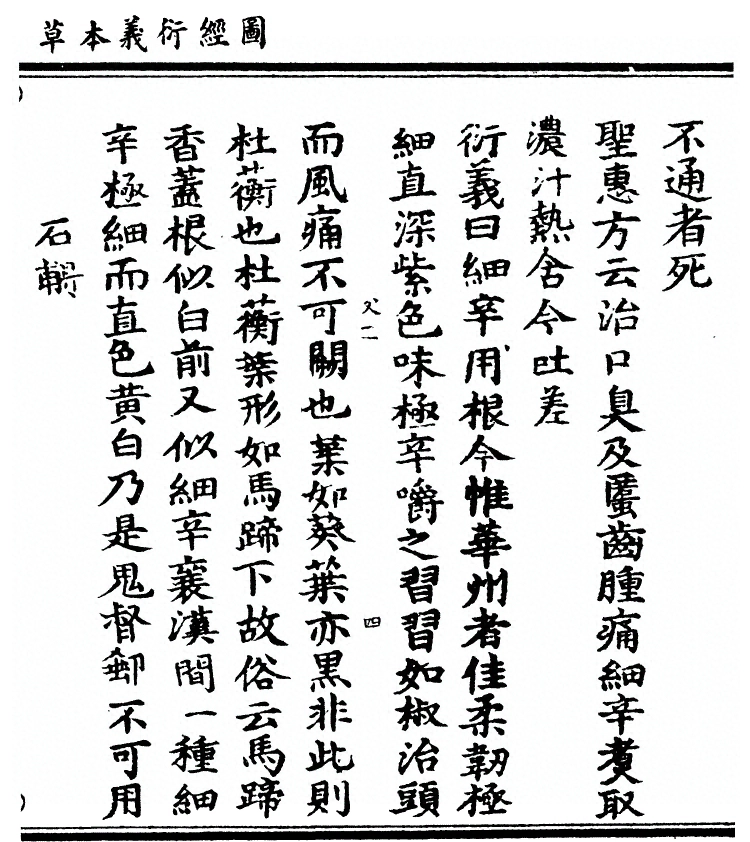 圖經衍義本草
不通者死
聖惠方云治口臭及䘌齒腫痛細辛煑取
濃汁熱含冷吐差
衍義曰細辛用根今惟華州者佳柔韌極
細直深紫色味極辛嚼之習習如椒治頭
父二
四
而風痛不可闕也葉如葵葉亦黑非此則
杜蘅也杜蘅葉形如馬蹄下故俗云馬蹄
香蓋根似白前又似細辛襄漢間一種細
辛極細而直色黃白乃是鬼督郵不可用
石